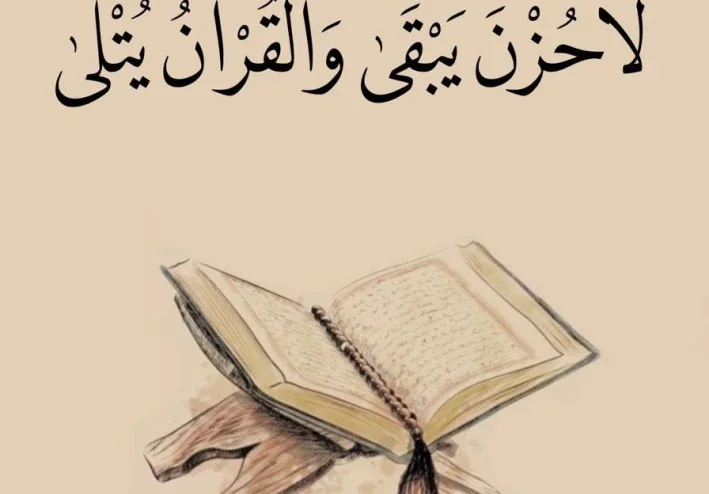 لَا حُزْنَ يَبْقَىٰ وَالْقُرْآنُ يُتْلَىٰ